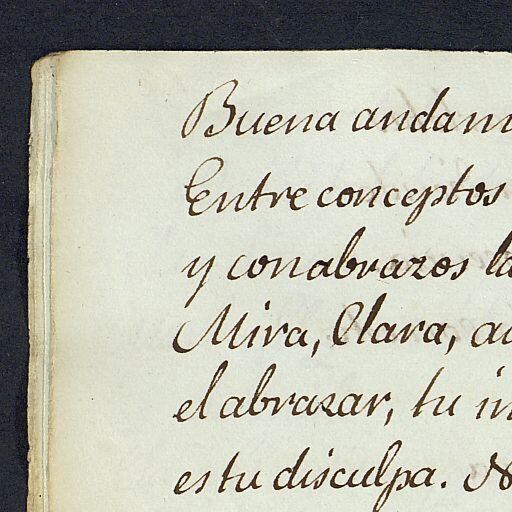 Buena andam
Entre conceptos
y con abrazos la
Mira, Clara, au
el abrazar, tu in
es tu disculpa. N